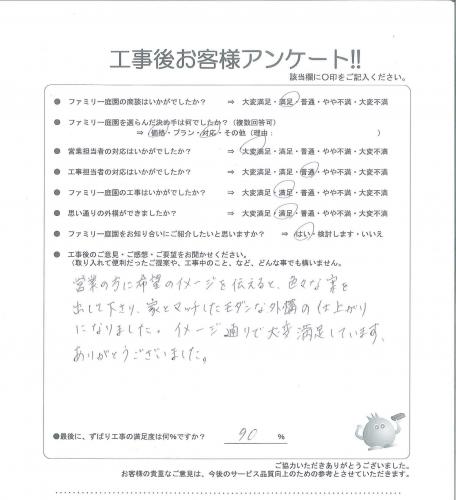 工事後お客様アンケート!!
該当欄に○印をご記入ください。
● ファミリー庭園の商談はいかがでしたか? ⇒ 大変満足・満足・普通・やや不満・大変不満
● ファミリー庭園を選らんだ決め手は何でしたか?(複数回答可)
⇒ 価格・プラン・対応・その他(理由: )
● 営業担当者の対応はいかがでしたか? ⇒ 大変満足・満足・普通・やや不満・大変不満
● 工事担当者の対応はいかがでしたか? ⇒ 大変満足・満足・普通・やや不満・大変不満
● ファミリー庭園の工事はいかがでしたか? ⇒ 大変満足・満足・普通・やや不満・大変不満
● 思い通りの外構ができましたか? ⇒ 大変満足・満足・普通・やや不満・大変不満
● ファミリー庭園をお知り合いにご紹介したいと思いますか? ⇒ はい・検討します・いいえ
● 工事後のご意見・ご感想・ご要望をお聞かせください。
(取り入れて便利だったご提案や、工事中のこと、など、どんな事でも構いません。
営業の方に希望のイメージを伝えると、色々な案を
出して下さり、家とマッチしたモダンな外構の仕上がり
になりました。イメージ通りで大変満足しています、
ありがとうございました。
●最後に、ずばり工事の満足度は何%ですか? 90 %
ご協力いただきありがとうございました。
お客様の貴重なご意見は、今後のサービス品質向上のための参考とさせていただきます。